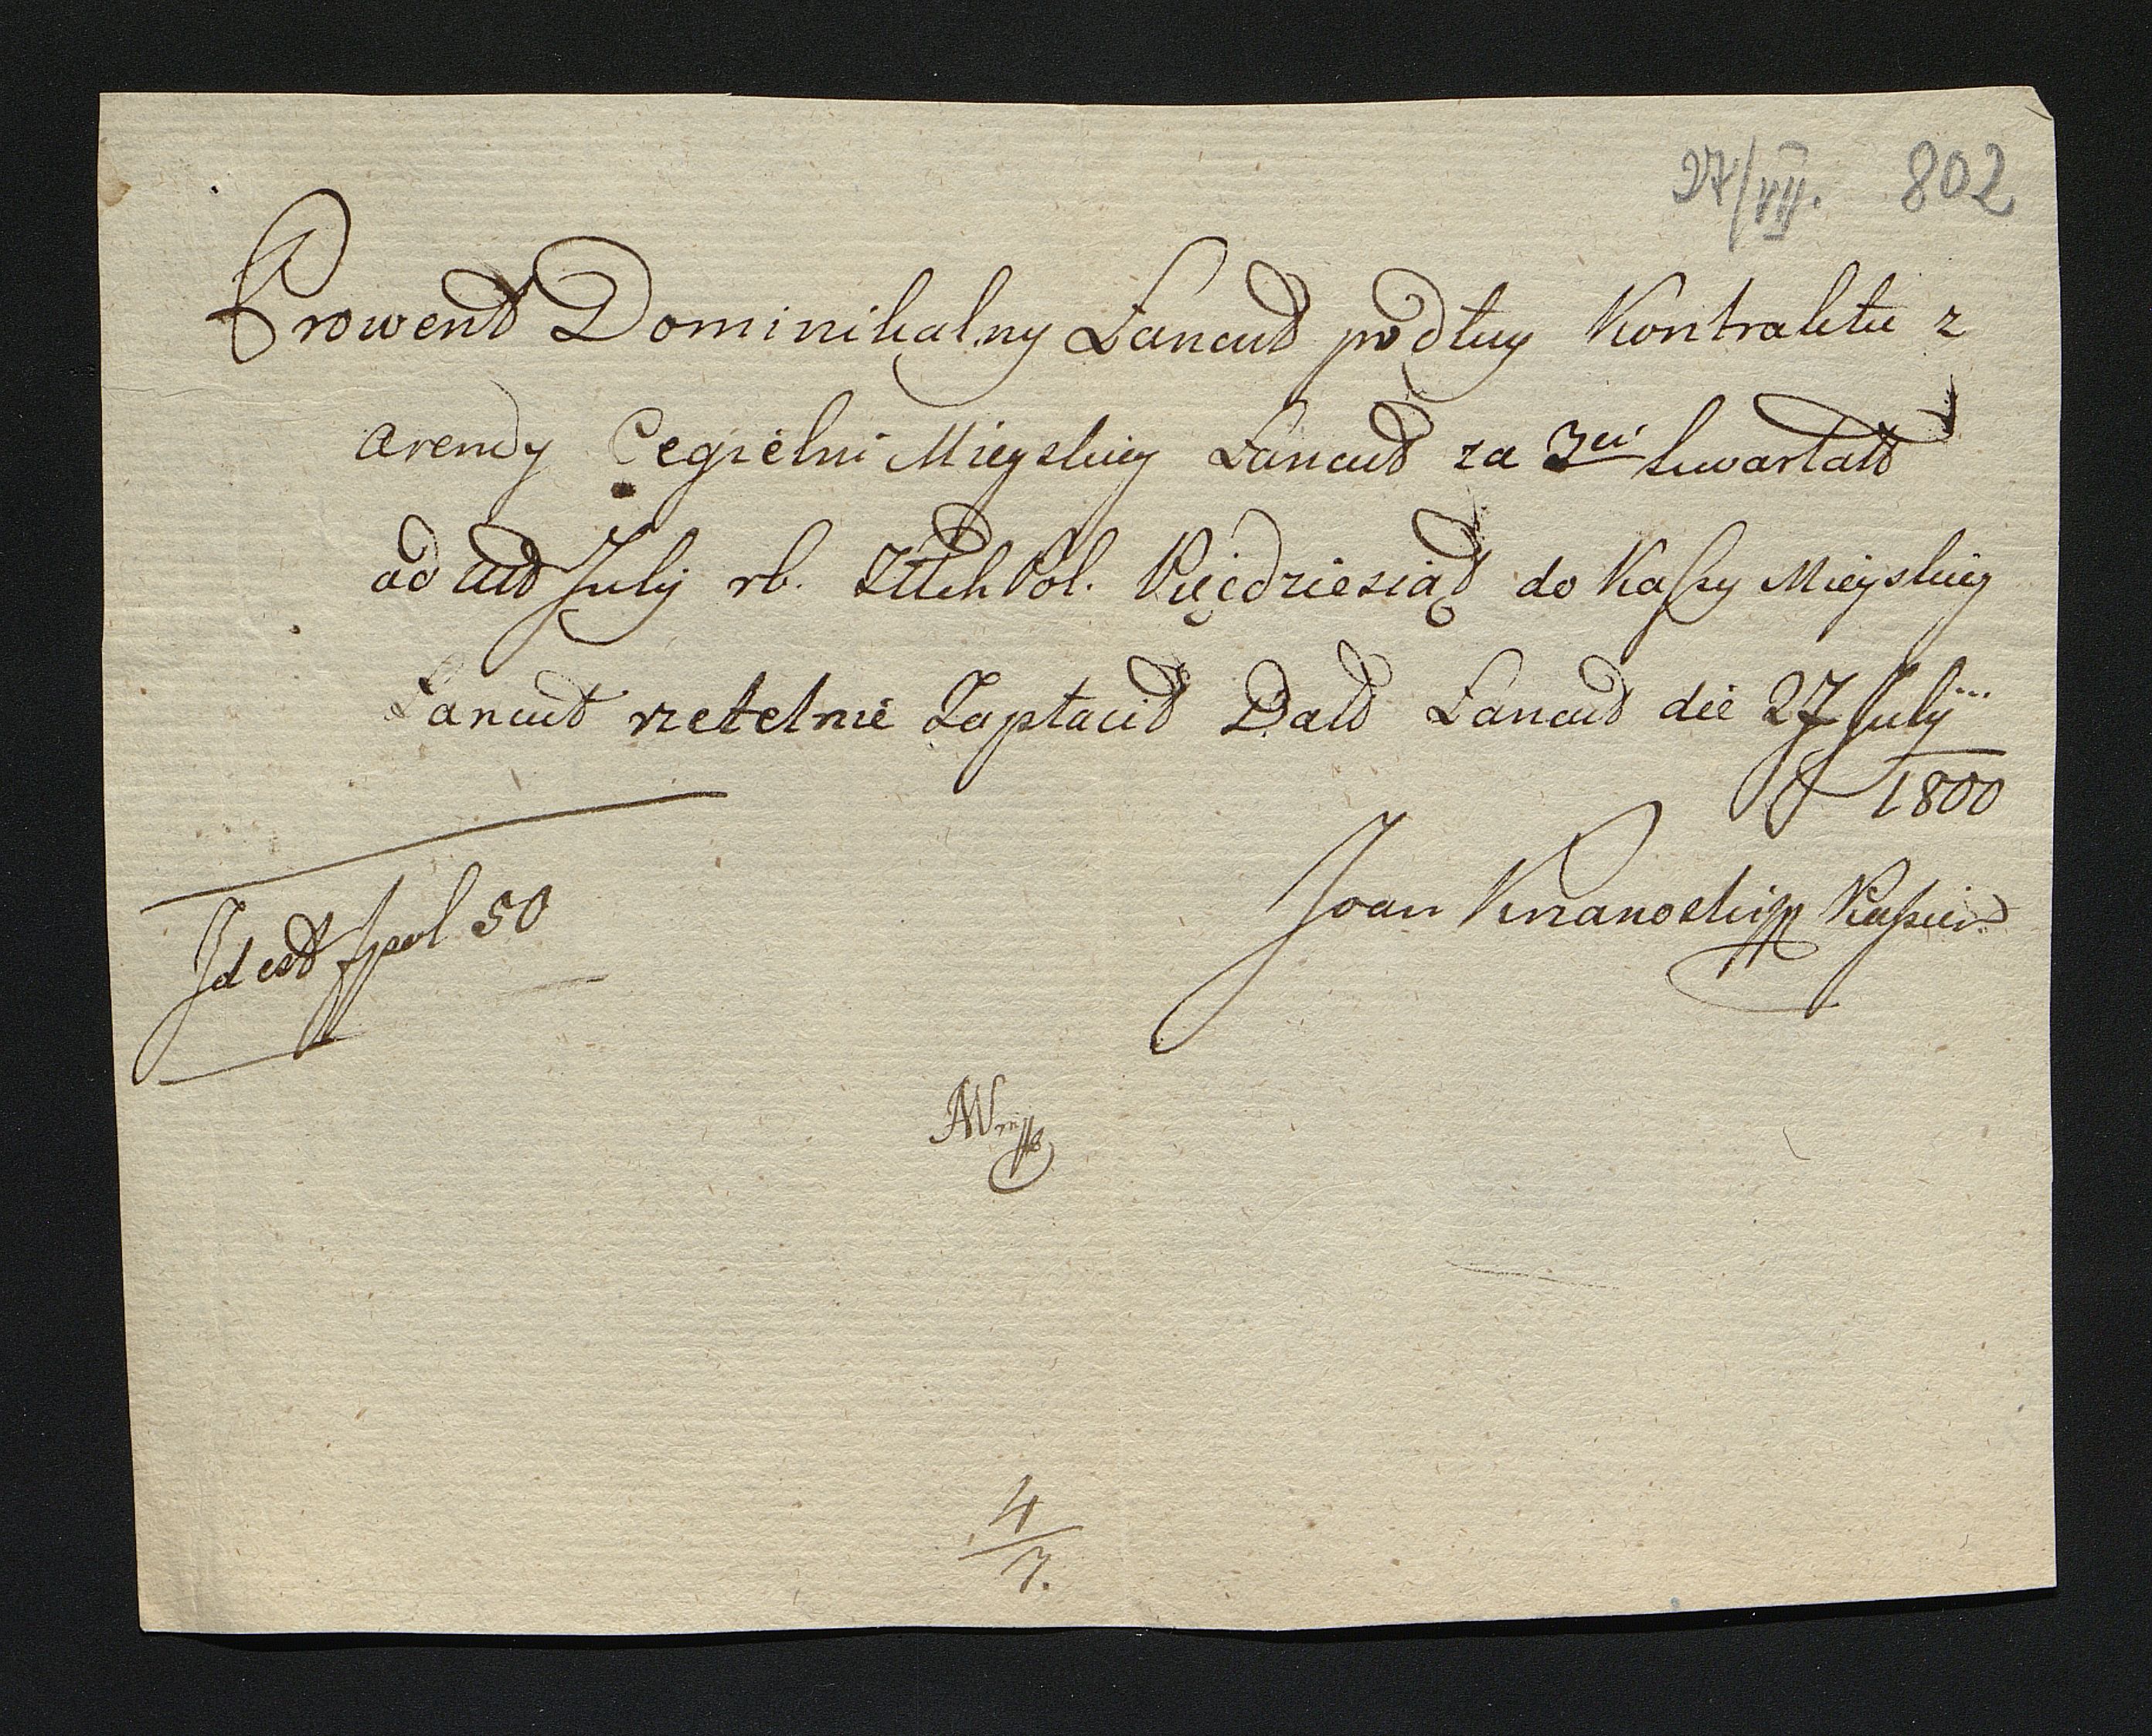 27/VII. 802
Prowent Dominikalny Łancut podług Kontraktu z
arendy Cegielni Mieyskiey Łancut za 3ci kwartał
ad ult July rb. Złtch Pol. Pięćdziesiąt do Kassy Mieyskiey
Łancut rzetelnie Zapłacił Datt Łancut die 27 July
1800
Id est fpol 50
Joan Krzanoski Kassier
4/7.